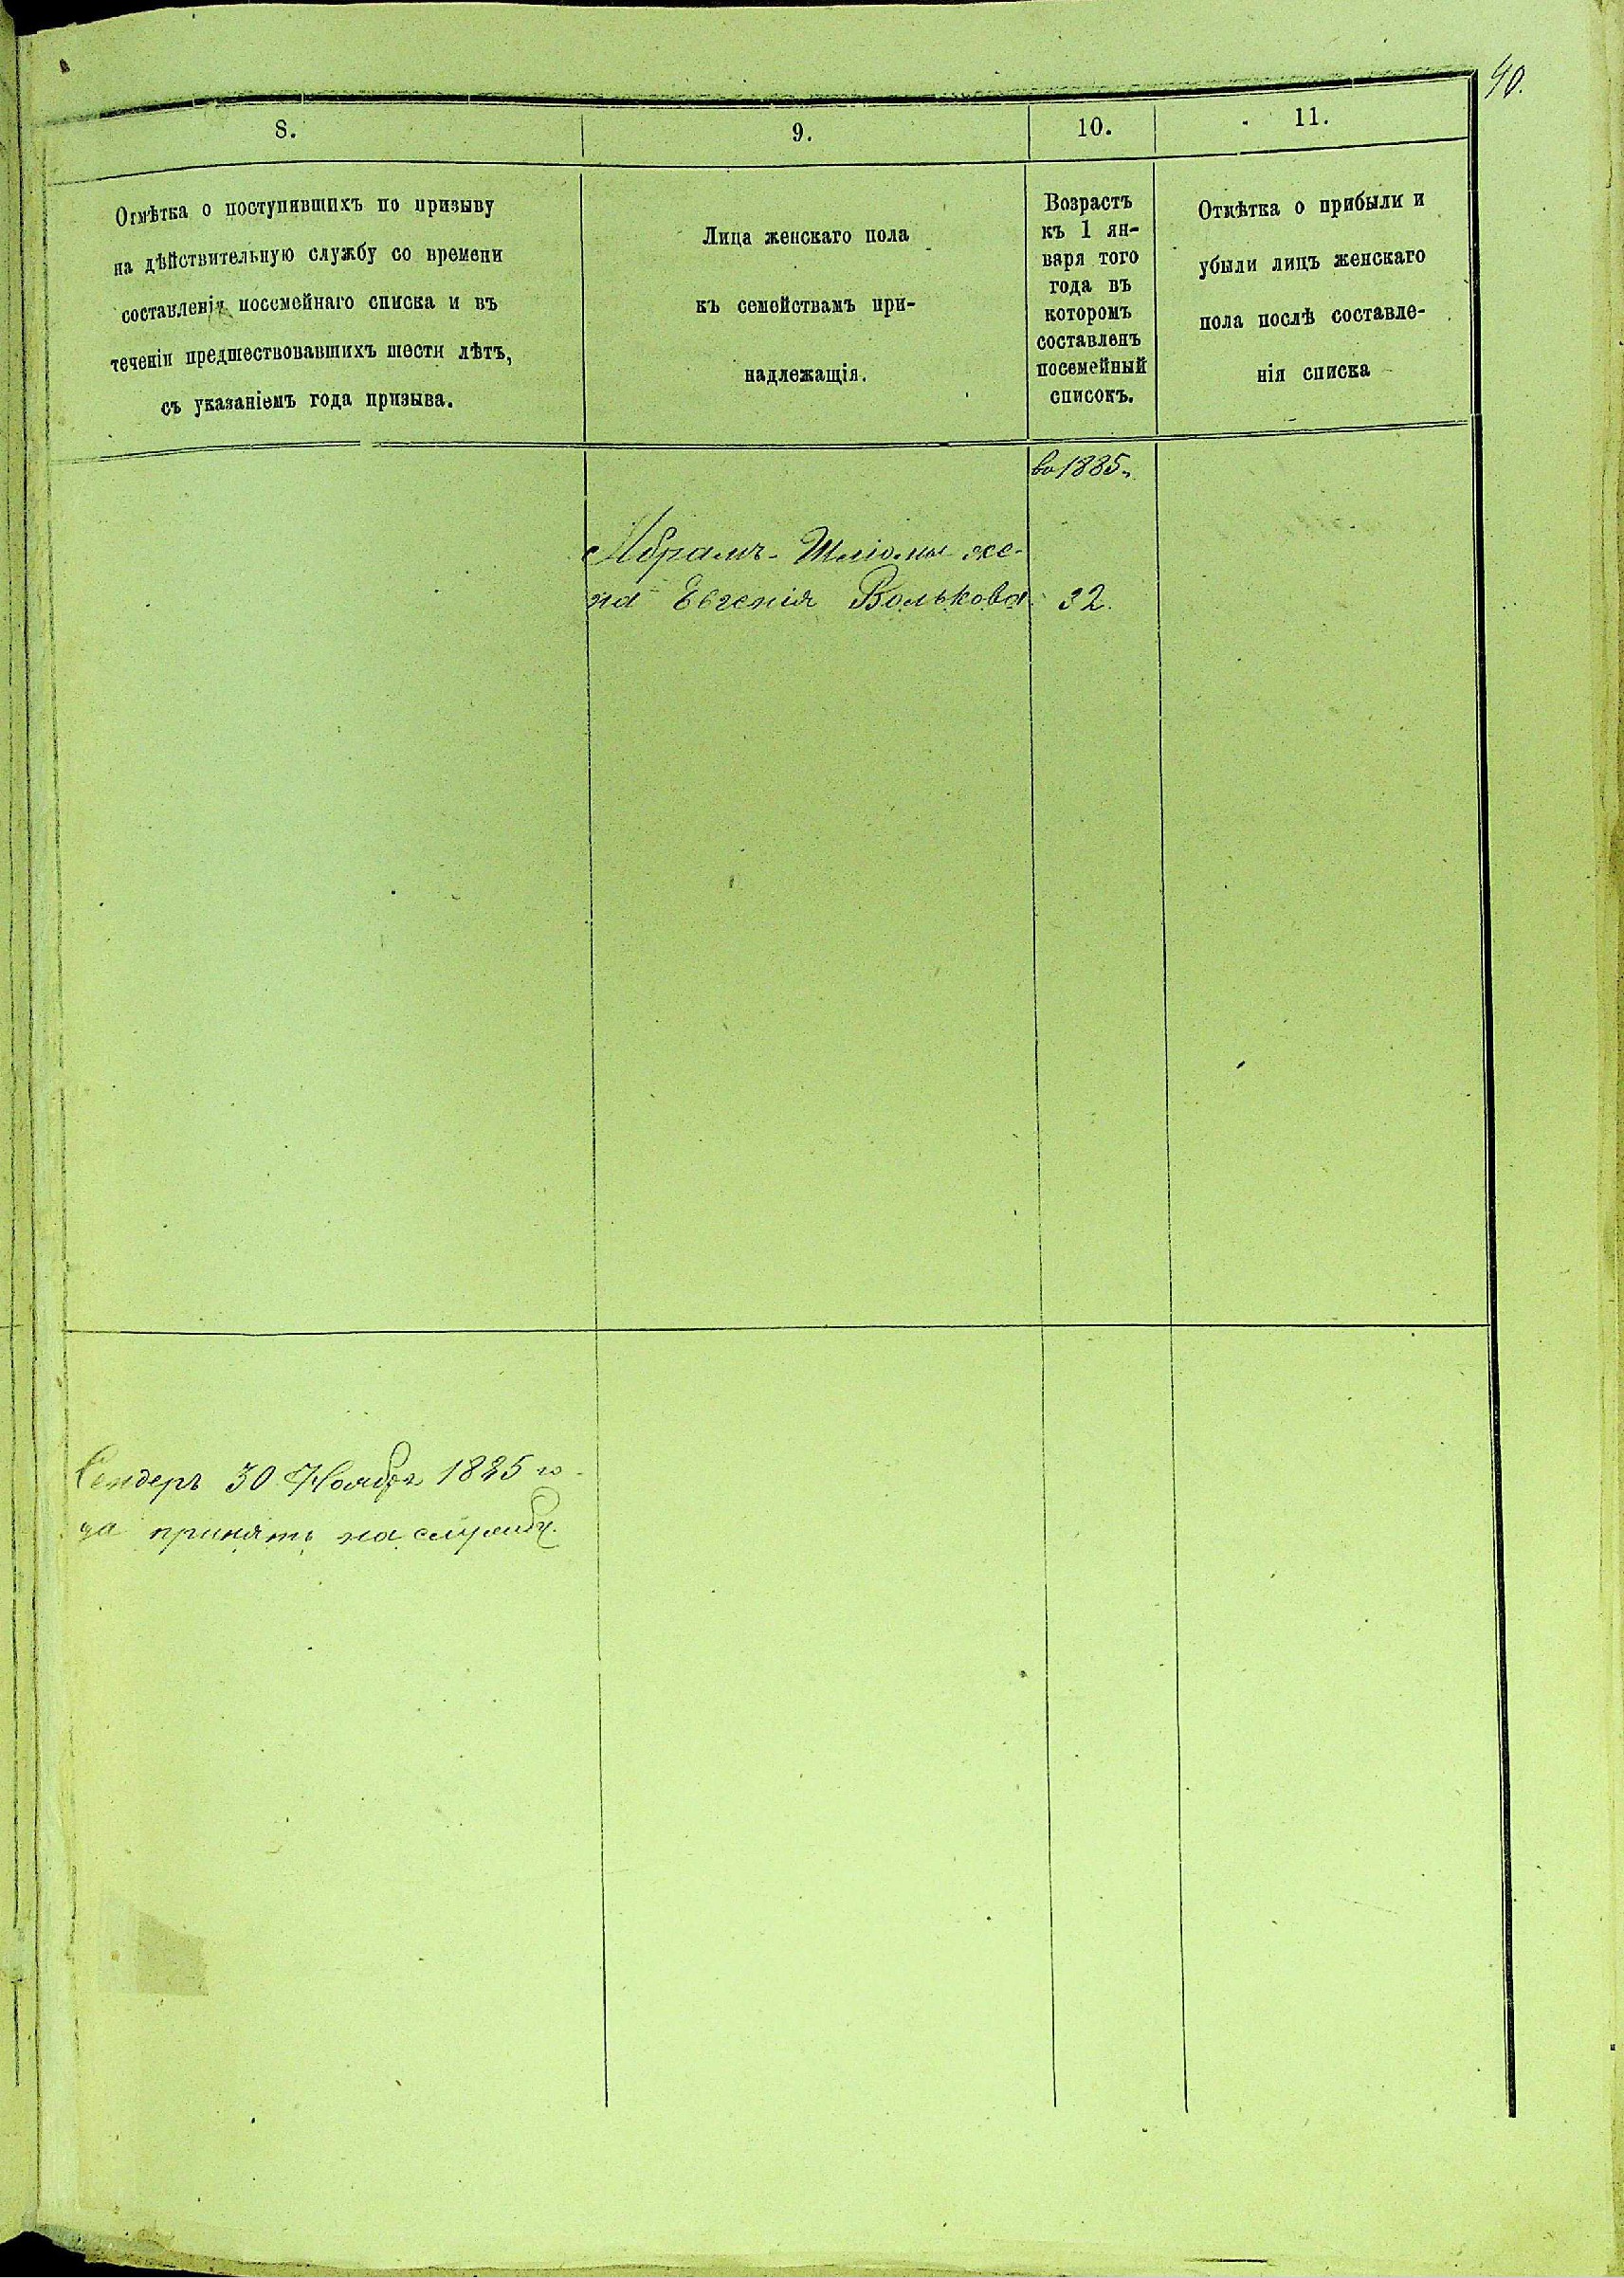 40.
8.
9.
10.
11.
Отмѣтка о поступившихъ по призыву
на дѣйствительную службу со времени
составленія посемейнаго списка и въ
теченіи предшествовавшихъ шести лѣтъ,
съ указаніемъ года призыва.
Лица женскаго пола
къ семействамъ при-
надлежащія.
Возрастъ
къ 1 ян-
варя того
года въ
которомъ
составленъ
посемейный
списокъ.
Отмѣтка о прибыли и
убыли лицъ женскаго
пола послѣ составле-
нія списка
въ 1885 г.
Абрамъ-Шліомы же-
на Евгенія Волькова
32.
Сендеръ 30 Ноября 1885 го-
да принятъ на службу.